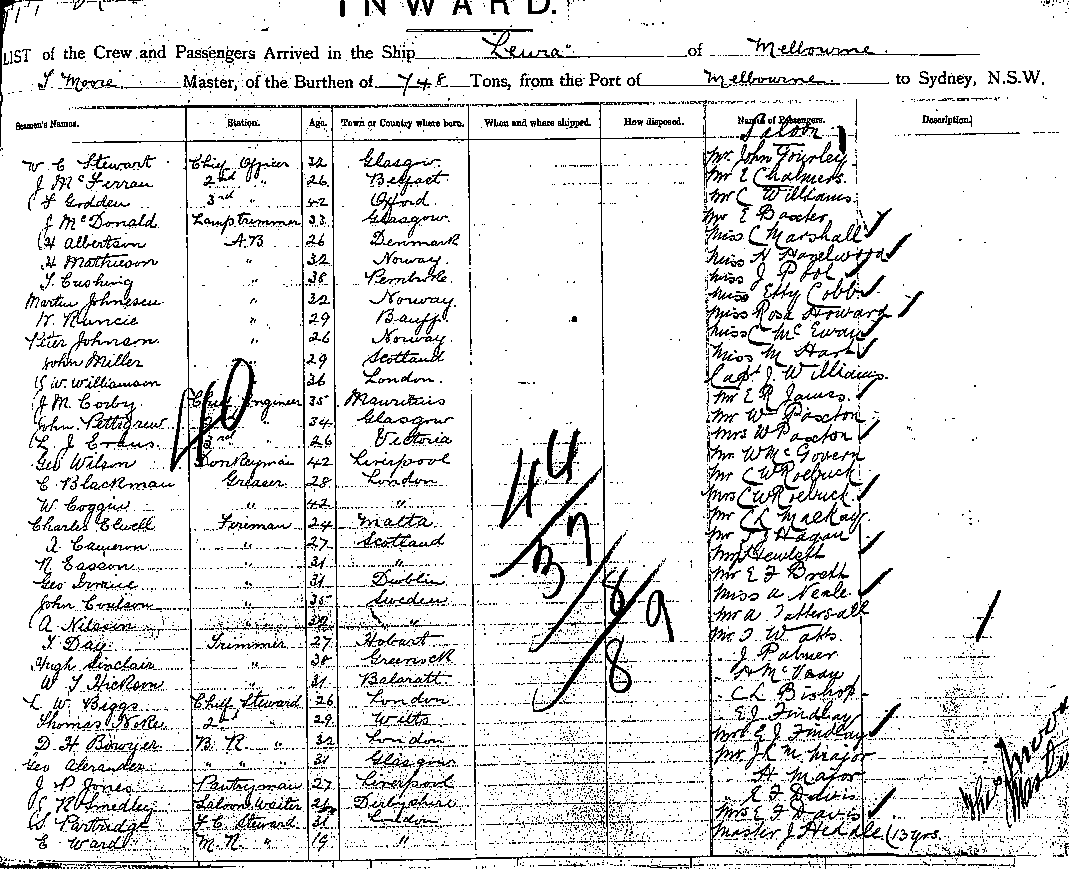 INWARD.
LIST of the Crew and Passengers Arrived in the Ship "Leura" of Melbourne
T Moore Master, of the Burthen of 748 Tons, from the Port of Melbourne to Sydney, N.S.W.
Seamen's Names. Station. Age. Town or Country where born. When and where shipped. How disposed. Names of Passengers. Description.
Saloon
W C Stewart Chief Officer 32 Glasgow Mr John Fourley
J McFerran 2nd " 26 Belfast Mr E Chalmers
F Godden 3rd " 42 Oxford Mr C Williams
J McDonald Lamptrimmer 33 Glasgow Mr E Baxter
H Albertson A.B 26 Denmark Miss C Marshall
H Mathieson " 32 Norway Miss H Hazelwood
T Cushing " 38 Pembroke Miss J Pool
Martin Johnesen " 32 Norway Miss Etty Cobb
W. Runcie " 29 Banff Miss Rosa Howard
Peter Johnson " 26 Norway Miss C McEwan
John Miller " 29 Scotland Miss M Hart
W. Williamson " 36 London Capt J. Williams
J M Corby Chief Engineer 35 Mauritais Mr E R James
John Pettigrew 2nd " 34 Glasgow Mr W Paxton
L J Evans 3rd " 26 Victoria Mrs W Paxton
Geo Wilson Donkeyman 42 Liverpool Mr W McGovern
C Blackman Greaser 28 London Mr C W Roebuck
W Coggin " 42 " Mrs C W Roebuck
Charles Elwell Fireman 24 Malta Mr C L Mackay
A Cameron " 27 Scotland Mr Hagan
N Easson " 31 " Hewlett
Geo Irvine " 31 Dublin Mr E F Brett
John Coulson " 35 Sweden Miss A Neale
A Nilsson " " Mr A Tattersall
T Day Trimmer 27 Hobart Mr T Watts
Hugh Sinclair " 38 Greenock J Palmer
W T Hickson " 31 Balaratt H McVeay
L W Biggs Chief Steward 26 London C L Bishop
Thomas Noke 2nd " 29 Wilts E J Findlay
D H Bowyer B. R. " 32 London Mrs E J Findlay
Geo Alexander " " " 31 Glasgow Mr J K M Major
J P Jones Pantryman 27 Liverpool H Major
R Smedley Saloon Waiter 24 Derbyshire E F Davis
S Partridge F.C Steward 31 London Mrs E F Davis
E Ward M. R. " 19 " Master J Hedale (13 yrs.
40
44
37
8
9
8